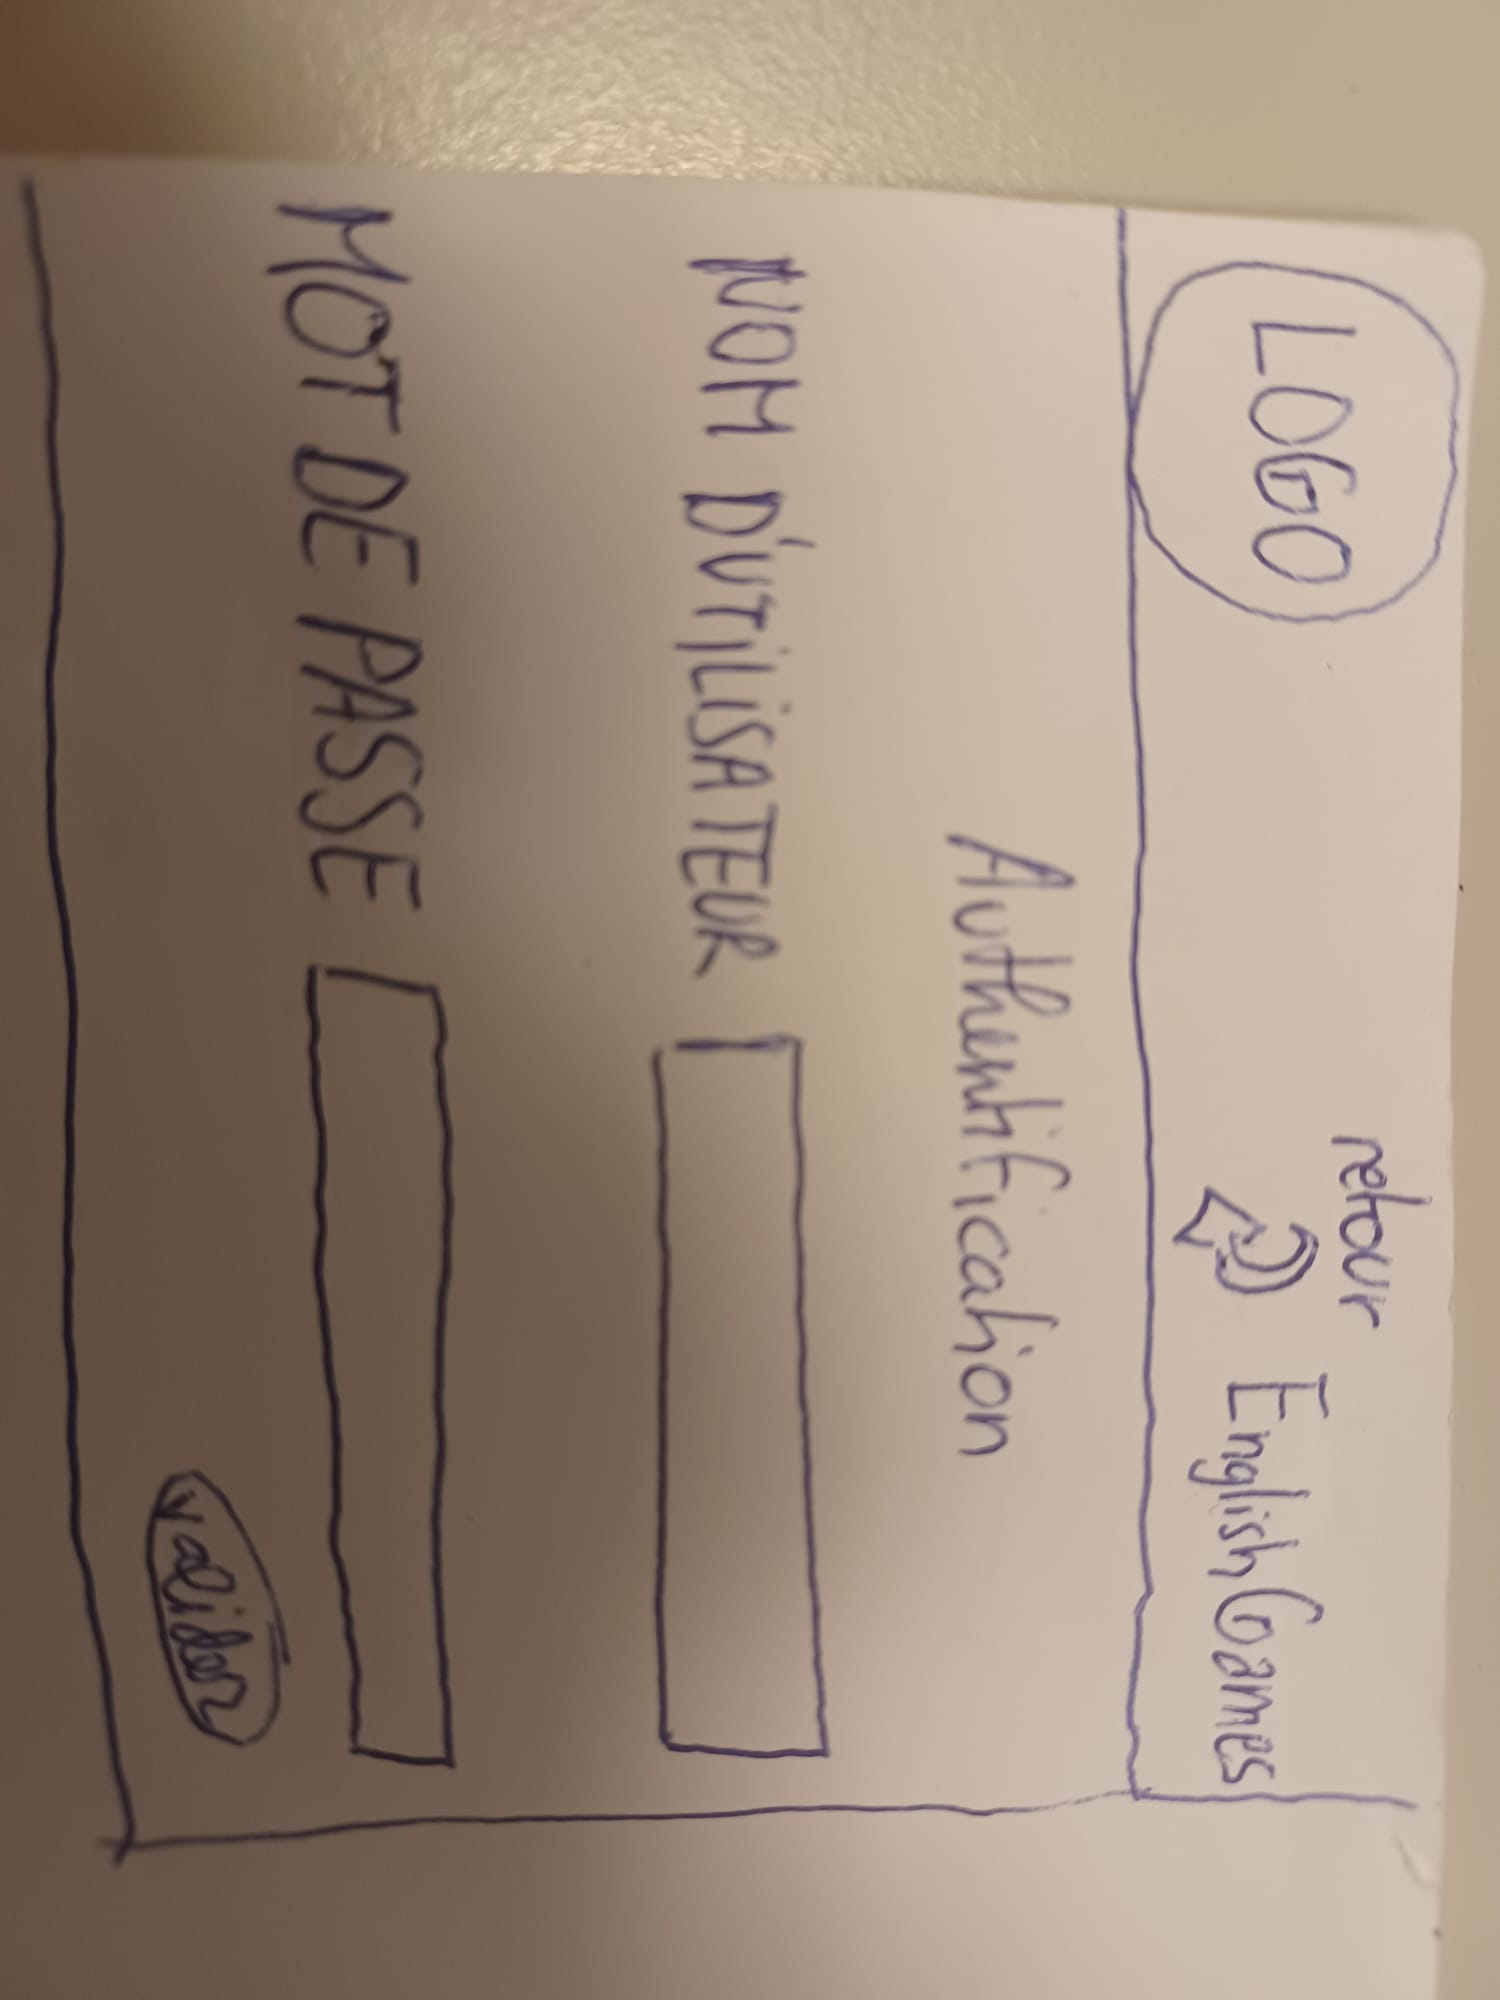 LOGO
retour
English Games
Authentification
NOM D'UTILISATEUR
MOT DE PASSE
valider